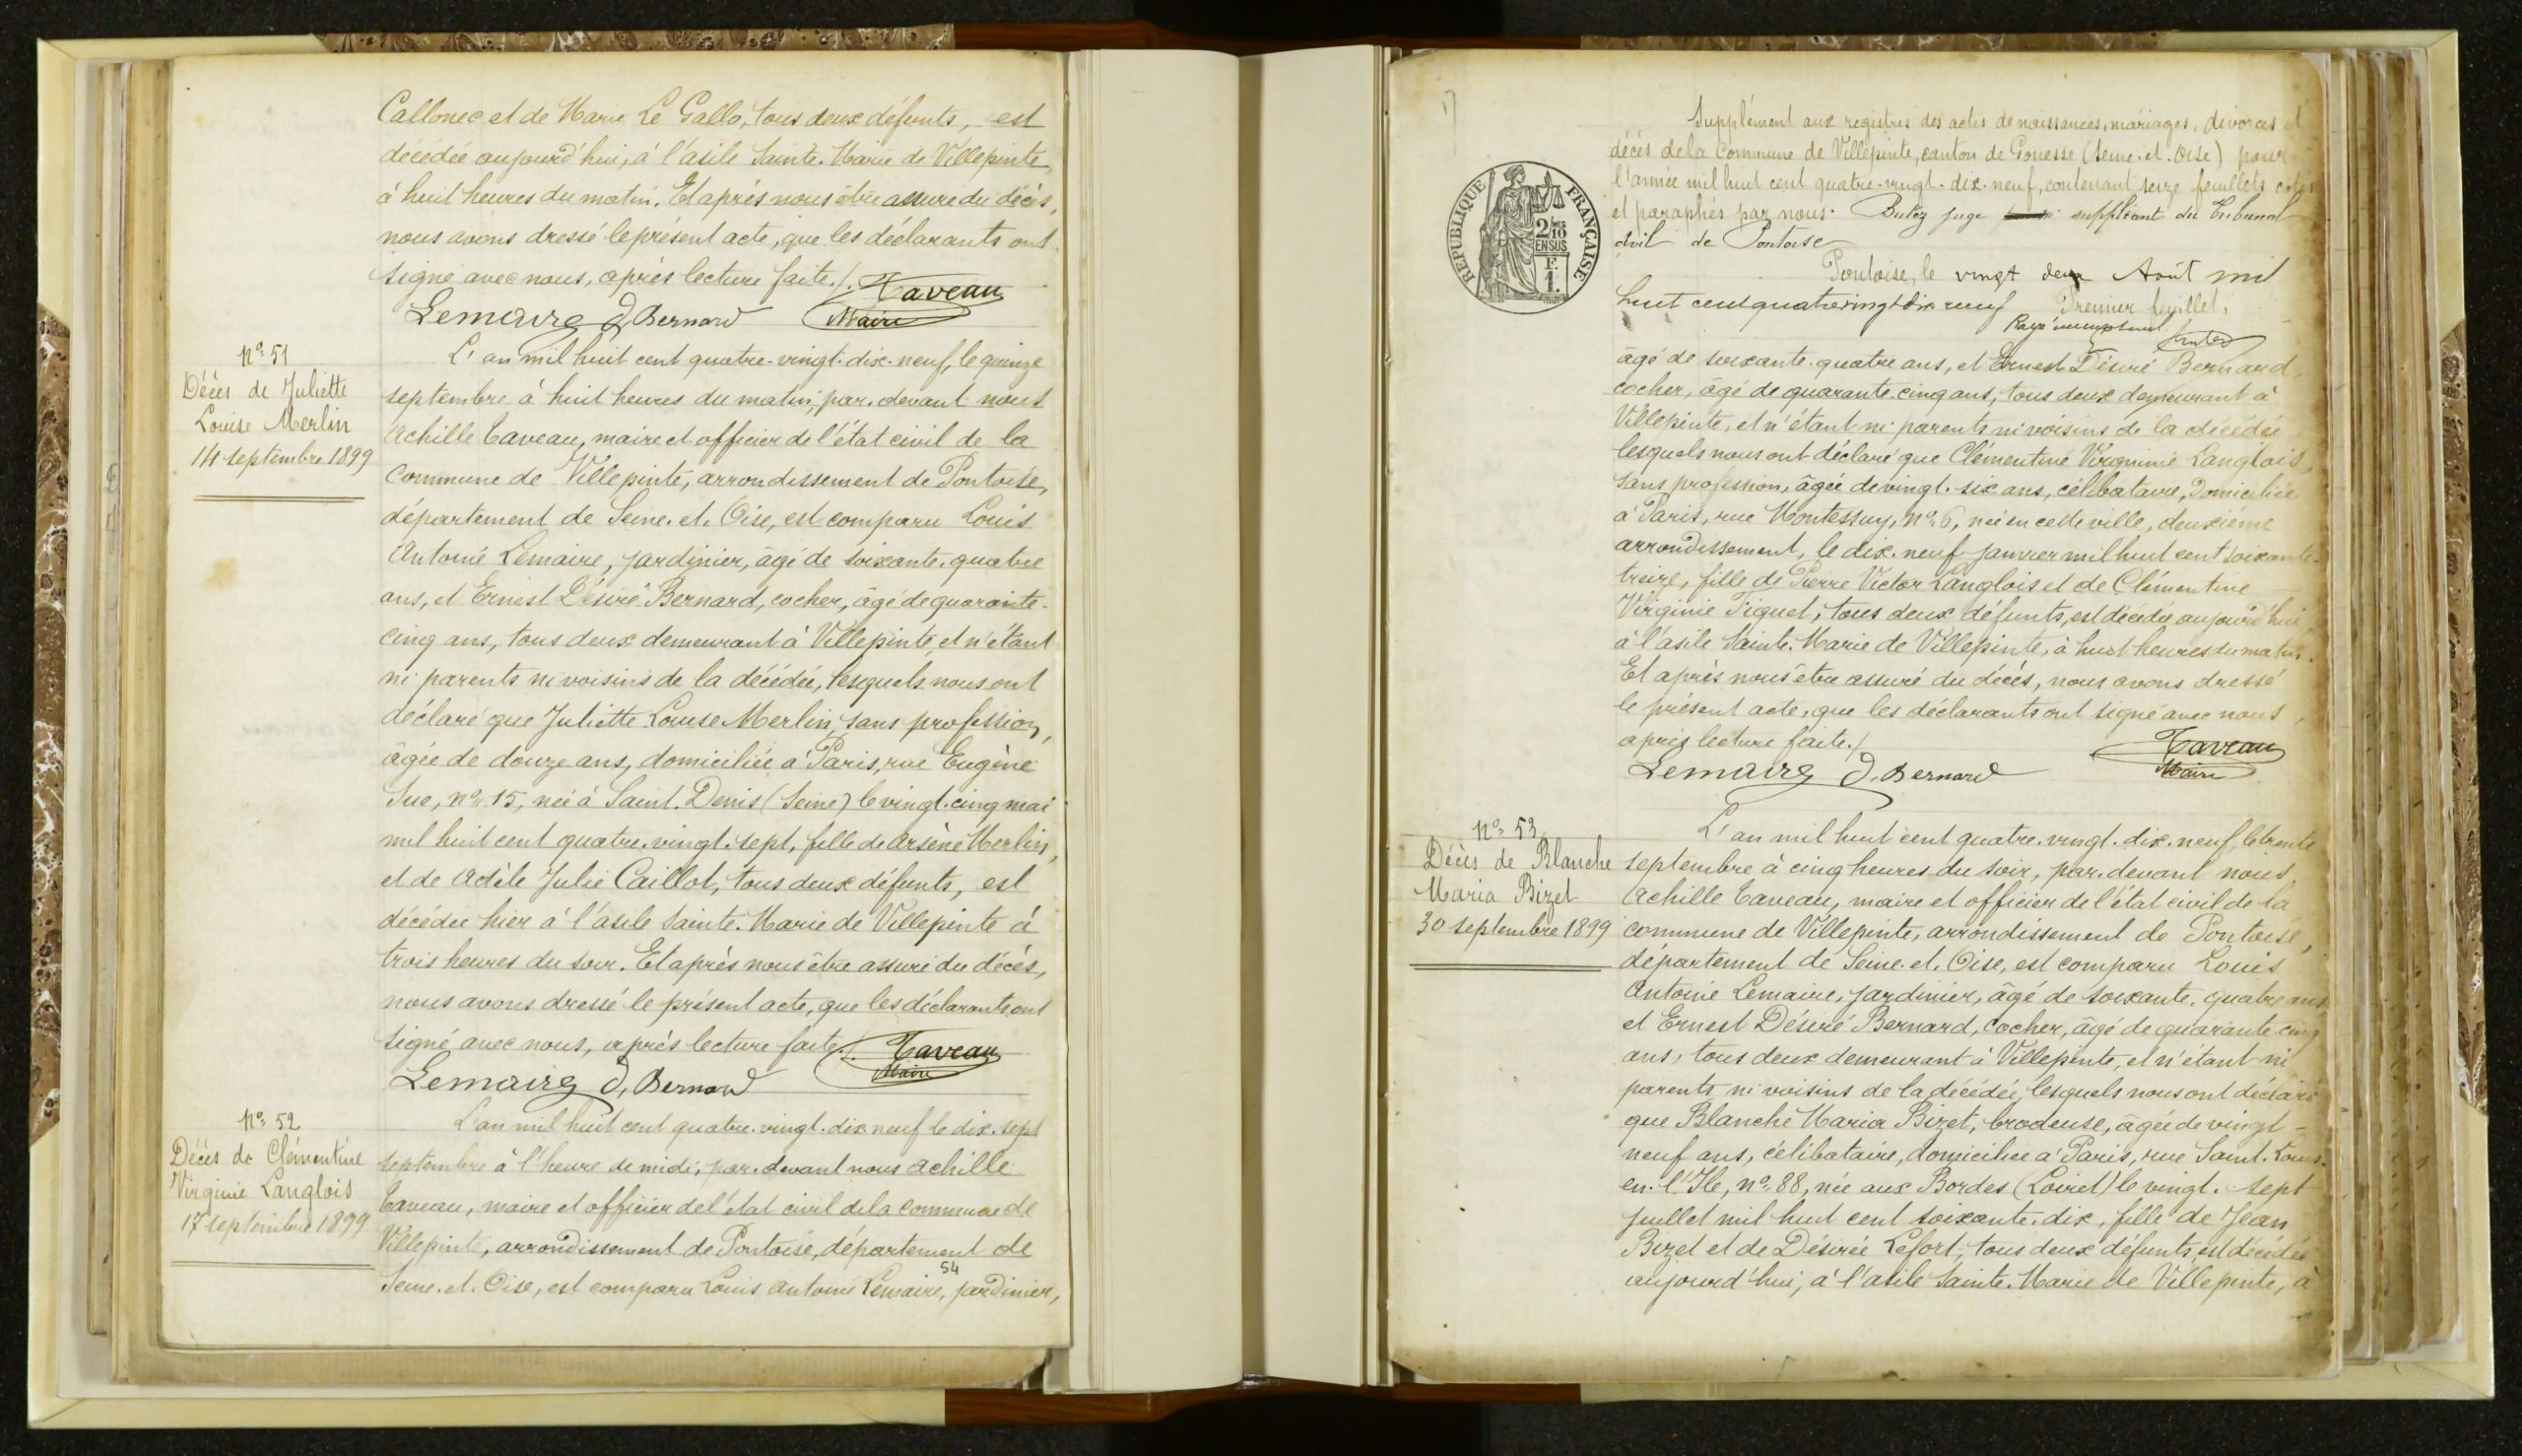 Callonec et de Marie Le Gallo, tous deux défunts, est
décédée aujourd'hui, à l'asile Sainte-Marie de Villepinte,
à huit heures du matin. Et après nous être assuré du décès,
nous avons dressé le présent acte, que les déclarants ont
signé avec nous, après lecture faite./. Taveau
Lemaire D, Bernard Maire
N° 51
Décès de Juliette
Louise Merlin
14 septembre 1899
L'an mil huit cent quatre-vingt-dix-neuf, le quinze
septembre à huit heures du matin, par-devant nous
Achille Taveau, maire et officier de l'état civil de la
Commune de Villepinte, arrondissement de Pontoise,
département de Seine-et-Oise, est comparu Louis
Antoine Lemaire, jardinier, âgé de soixante-quatre
ans, et Ernest Désiré Bernard, cocher, âgé de quarante-
cinq ans, tous deux demeurant à Villepinte, et n'étant
ni parents ni voisins de la décédée, lesquels nous ont
déclaré que Juliette Louise Merlin, sans profession,
âgée de douze ans, domiciliée à Paris, rue Eugène
Sue, n° 15, née à Saint-Denis (Seine) le vingt-cinq mai
mil huit cent quatre-vingt-sept, fille de Arsène Merlin,
et de Adèle Julie Caillot, tous deux défunts, est
décédée hier à l'asile Sainte-Marie de Villepinte à
trois heures du soir. Et après nous être assuré du décès,
nous avons dressé le présent acte, que les déclarants ont
signé avec nous, après lecture faite./. Taveau
Lemaire D, Bernard Maire
N° 52
Décès de Clémentine
Virginie Langlois
17 septembre 1899
L'an mil huit cent quatre-vingt-dix-neuf le dix-sept
septembre à l'heure de midi, par-devant nous Achille
Taveau, maire et officier de l'état civil de la commune de
Villepinte, arrondissement de Pontoise, département de
Seine-et-Oise, est comparu Louis Antoine Lemaire, jardinier,
54
17
Supplément aux registres des actes de naissances, mariages, divorces et
décès de la Commune de Villepinte, canton de Gonesse (Seine-et-Oise) pour
l'année mil huit cent quatre-vingt-dix-neuf, contenant seize feuillets cotés
et paraphés par nous. Butez juge suppléant du Tribunal
civil de Pontoise
Pontoise, le vingt deux Août mil
huit cent quatre vingt dix neuf Premier feuillet.
RÉPUBLIQUE FRANÇAISE
2/10
EN SUS
F.
1.
âgé de soixante-quatre ans, et Ernest Désiré Bernard,
cocher, âgé de quarante-cinq ans, tous deux demeurant à
Villepinte, et n'étant ni parents ni voisins de la décédée
lesquels nous ont déclaré que Clémentine Virginie Langlois,
sans profession, âgée de vingt-six ans, célibataire, domiciliée
à Paris, rue Montessuy, n° 6, née en cette ville, deuxième
arrondissement, le dix-neuf janvier mil huit cent soixante-
treize, fille de Pierre Victor Langlois et de Clémentine
Virginie Tiquet, tous deux défunts, est décédée aujourd'hui,
à l'asile Sainte-Marie de Villepinte, à huit heures du matin.
Et après nous être assuré du décès, nous avons dressé
le présent acte, que les déclarants ont signé avec nous,
après lecture faite./. Taveau
Lemaire D, Bernard Maire
N° 53
Décès de Blanche
Maria Bizet
30 septembre 1899
L'an mil huit cent quatre-vingt-dix-neuf, le trente
septembre à cinq heures du soir, par-devant nous,
Achille Taveau, maire et officier de l'état civil de la
commune de Villepinte, arrondissement de Pontoise,
département de Seine-et-Oise, est comparu Louis
Antoine Lemaire, jardinier, âgé de soixante-quatre ans
et Ernest Désiré Bernard, cocher, âgé de quarante-cinq
ans, tous deux demeurant à Villepinte, et n'étant ni
parents ni voisins de la décédée, lesquels nous ont déclaré
que Blanche Maria Bizet, brodeuse, âgée de vingt-
neuf ans, célibataire, domiciliée à Paris, rue Saint-Louis-
en-l'Ile, n° 88, née aux Bordes (Loiret) le vingt-sept
juillet mil huit cent soixante-dix, fille de Jean
Bizet et de Désirée Lefort, tous deux défunts, est décédée
aujourd'hui, à l'asile Sainte-Marie de Villepinte, à